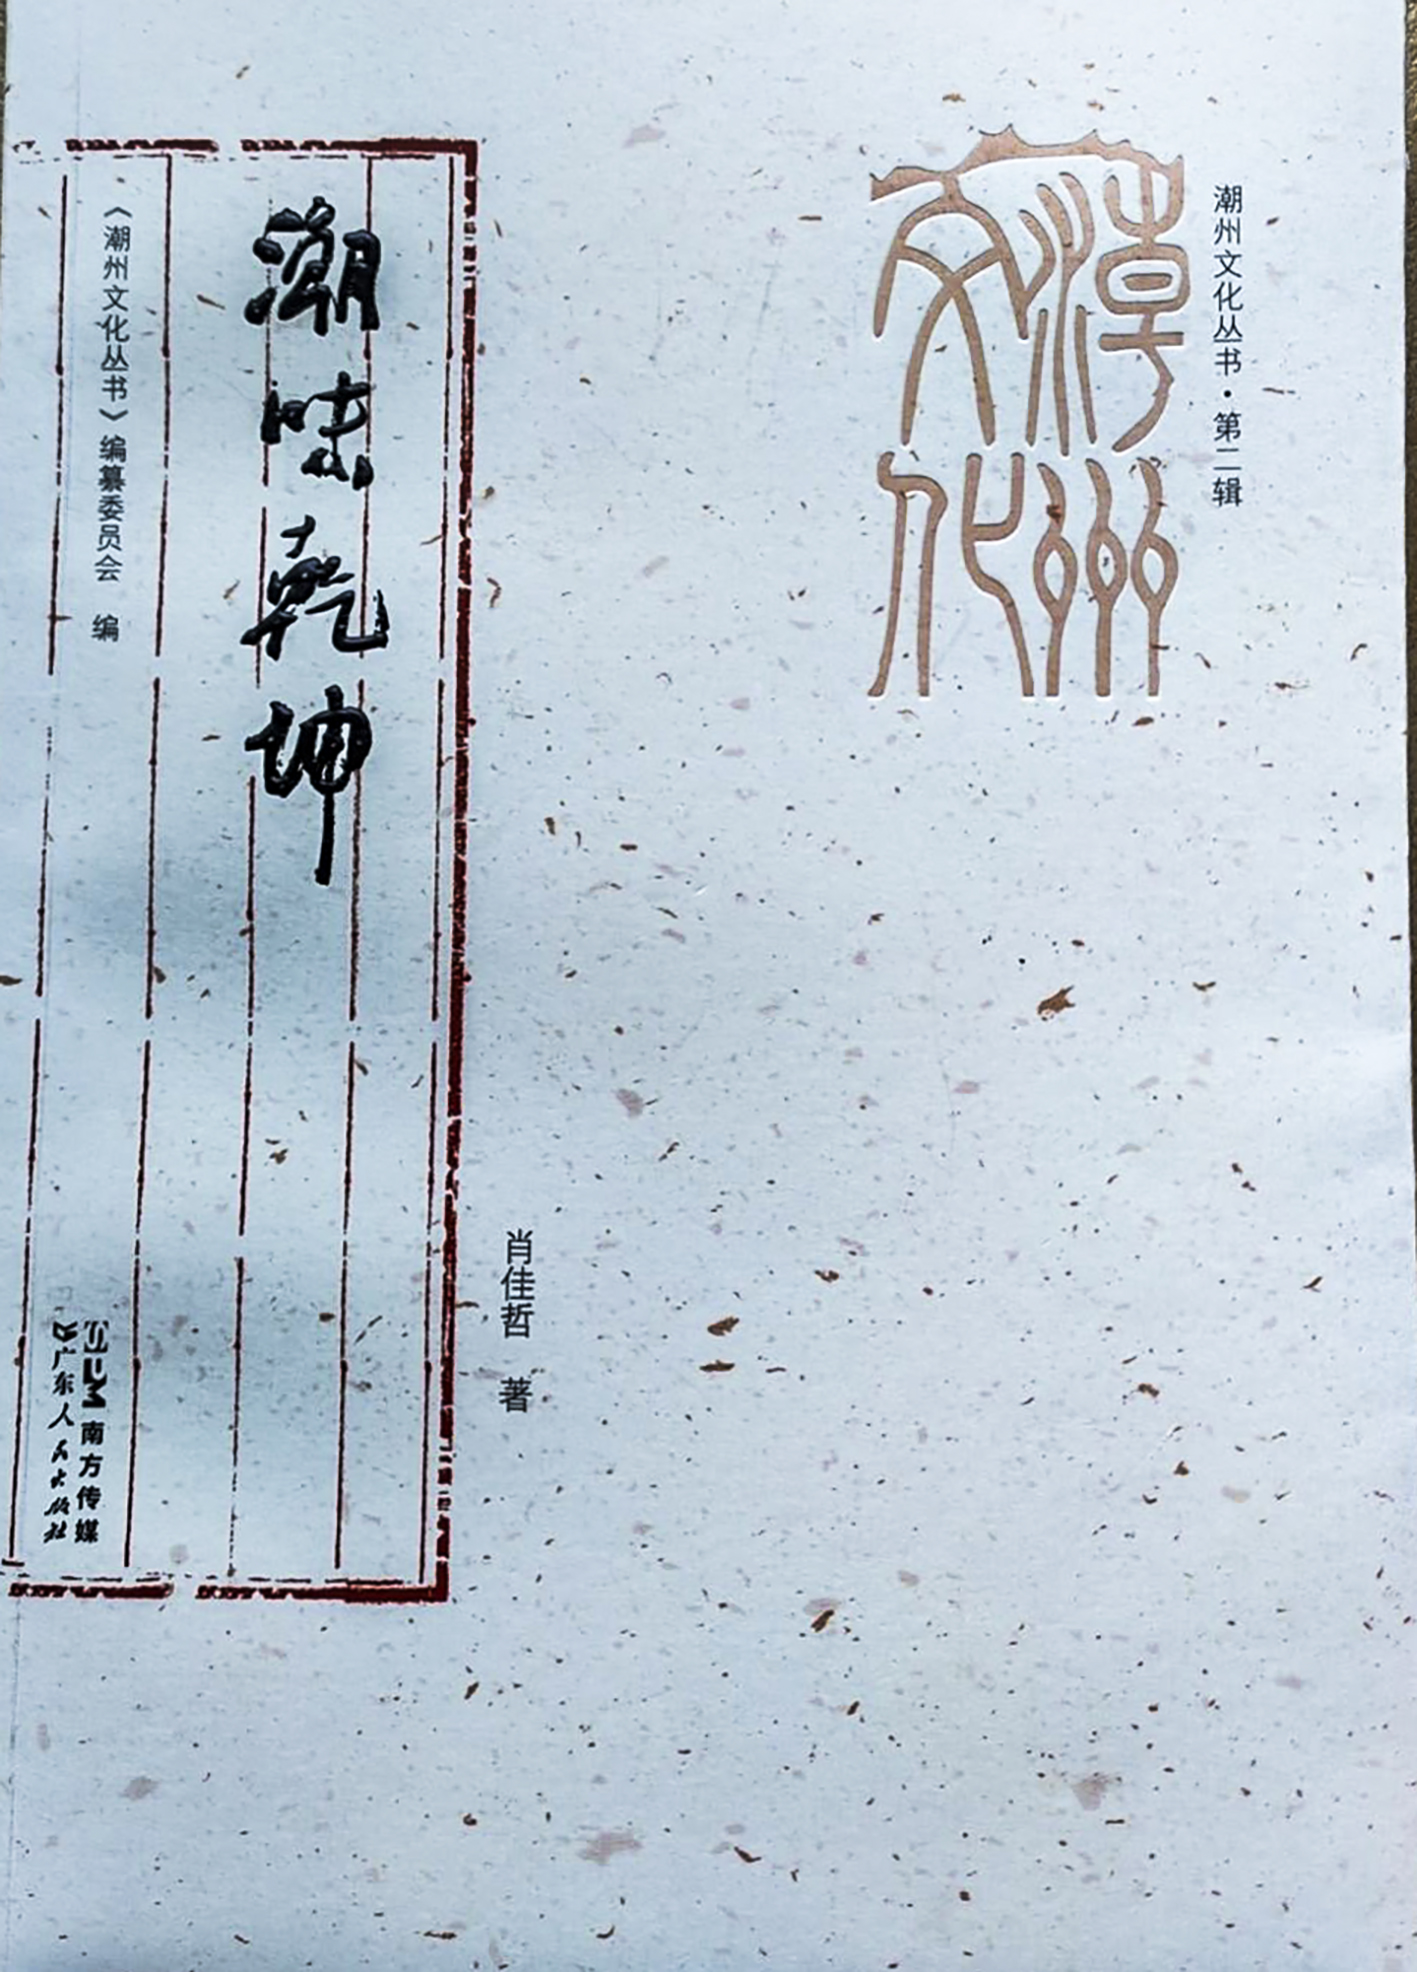 潮州文化丛书·第二辑
潮州
文化
肖佳哲 著
潮味乾坤
《潮州文化丛书》编纂委员会 编
南方传媒
广东人民出版社